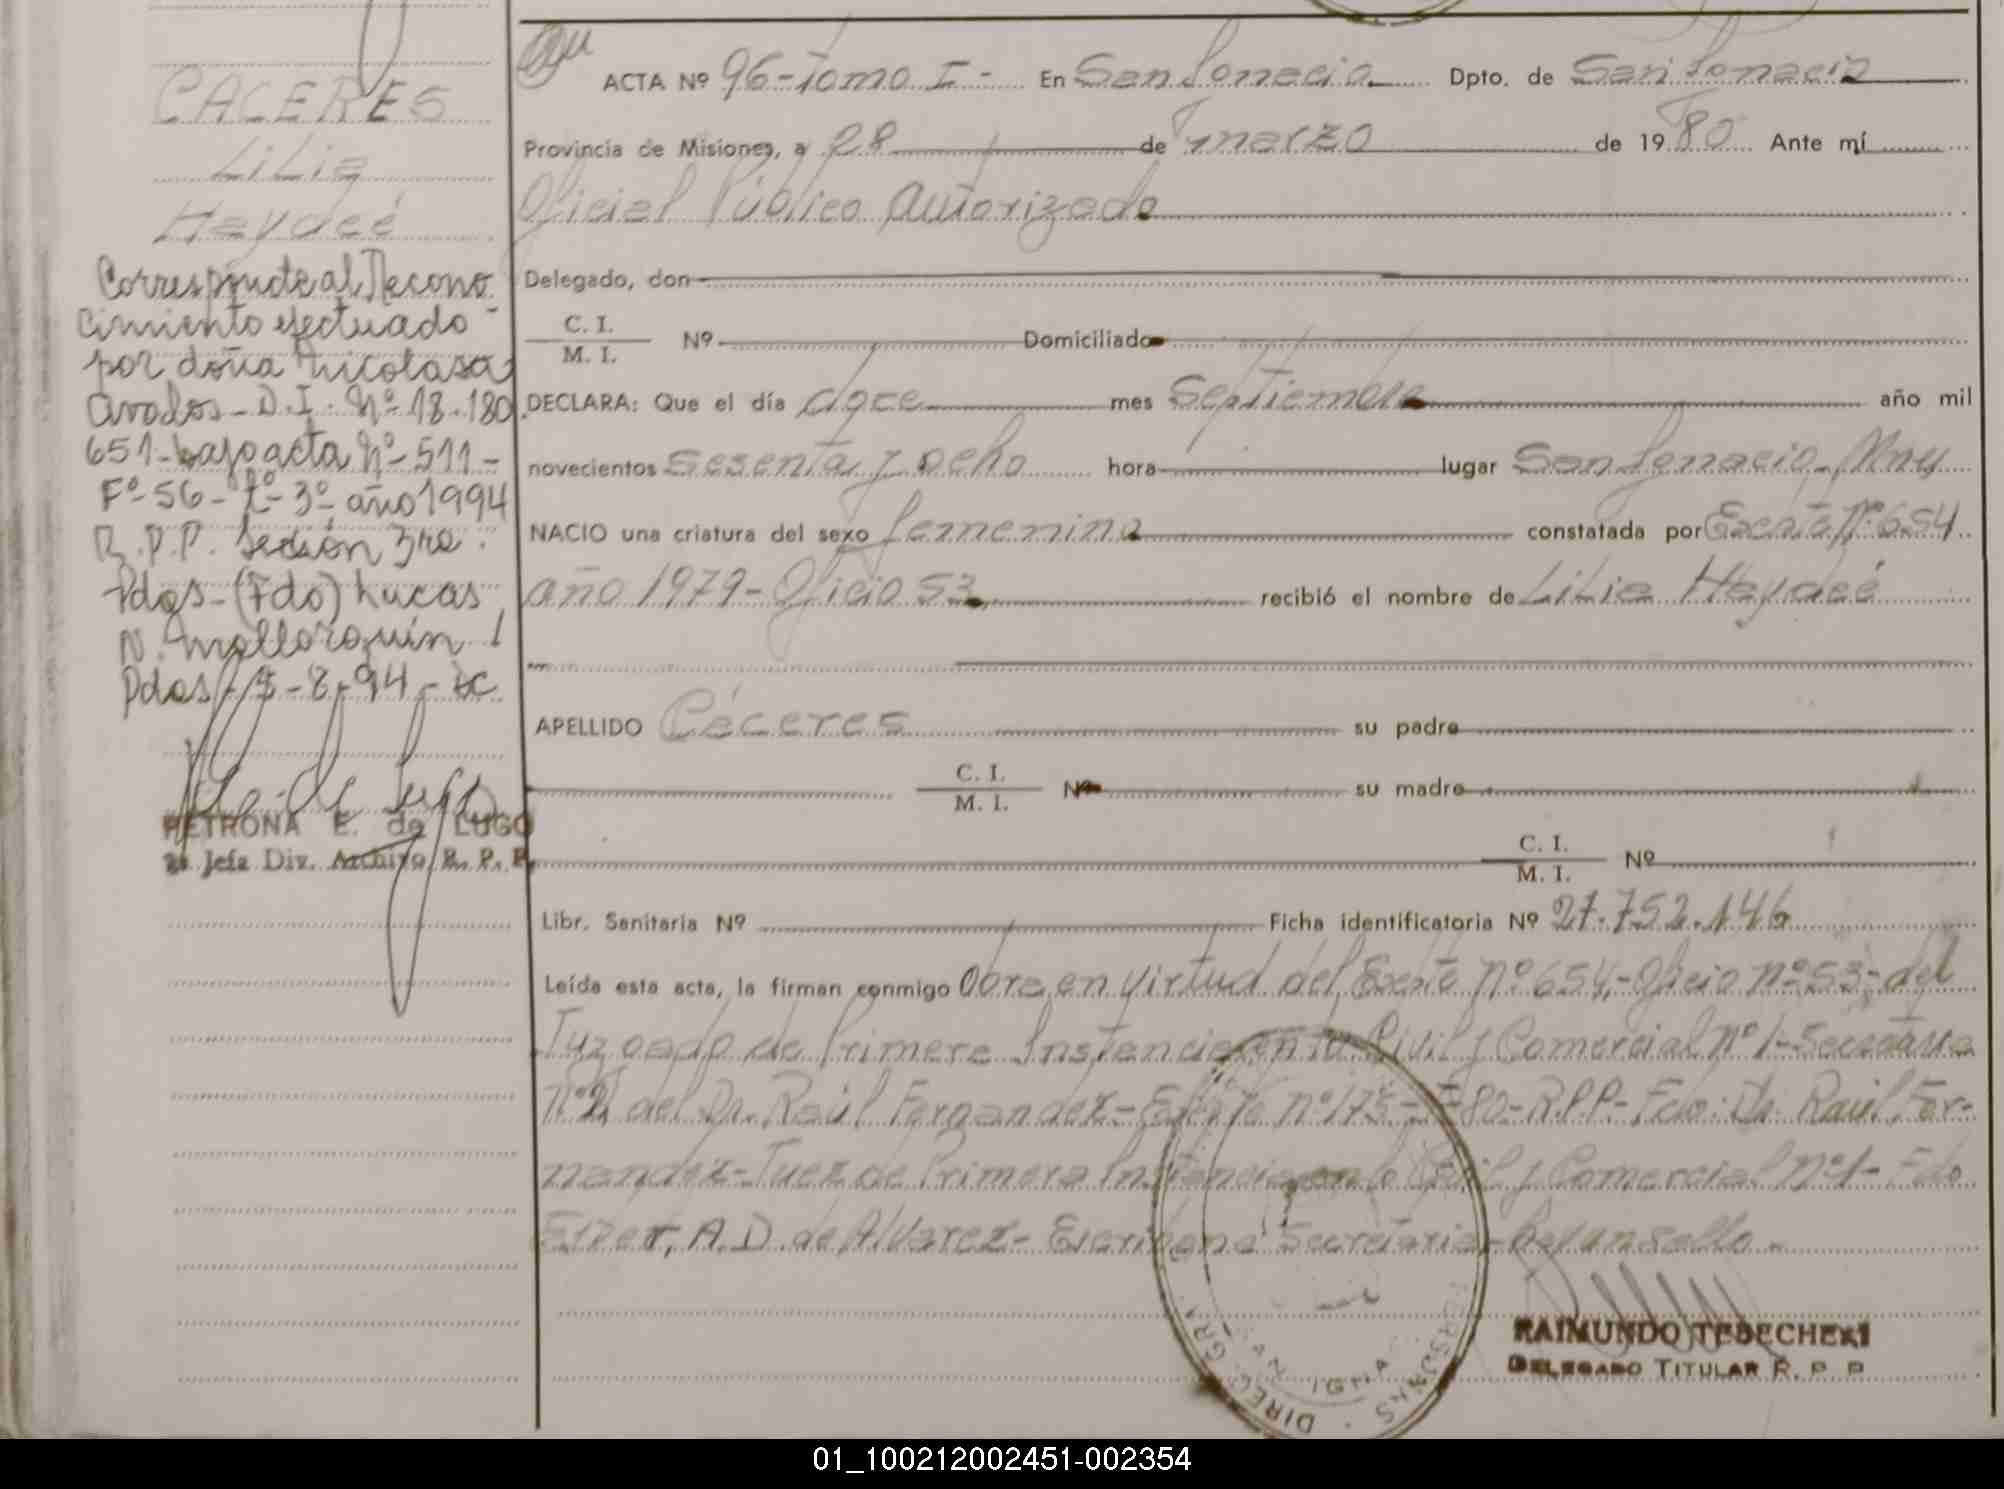 CACERES
Lilia
Haydeé
Corresponde al Recono
cimiento efectuado
por doña Nicolasa
Avalos - D.I. Nº 18.180.
651 - bajo acta Nº 511 -
Fº 56 - tº 3º año 1994
R.P.P. Sección 3ra.
Pdas - (Fdo) Lucas
N. Mallorquín
Pdas - 8-94 -
PETRONA E. de LUGO
Jefa Div. Archivo R. P. P.
ACTA Nº 96 - Tomo I - En San Ignacio Dpto. de San Ignacio
Provincia de Misiones, a 28 de marzo de 1980 Ante mí
Oficial Público Autorizado
Delegado, don
C. I.
M. I. Nº Domiciliado
DECLARA: Que el día doce mes Septiembre año mil
novecientos sesenta y ocho hora lugar San Ignacio - Mnes
NACIO una criatura del sexo femenino constatada por Expte Nº 654
año 1979 - Oficio 53 recibió el nombre de Lilia Haydeé
APELLIDO Cáceres su padre
C. I.
M. I. Nº su madre
C. I.
M. I. Nº
Libr. Sanitaria Nº Ficha identificatoria Nº 27.752.146
Leída esta acta, la firman conmigo Obra en virtud del Expte Nº 654 - Oficio nº 53 - del
Juzgado de Primera Instancia en lo Civil y Comercial Nº 1 - Secretaria
Nº 2 del Dr. Raúl Fernandez - Expte nº 175 - F - 80 - R.P.P. - Fdo: Dr. Raúl Fer-
nandez - Juez de Primera Instancia en lo Civil y Comercial nº 1 - Fdo
Ester A.D. de Alvarez - Escribana Secretaria - Hay un sello -
RAIMUNDO TEBECHERI
DELEGADO TITULAR R. P. P.
DIREC. GRL. PERSONAS
SAN IGNA
01_100212002451-002354